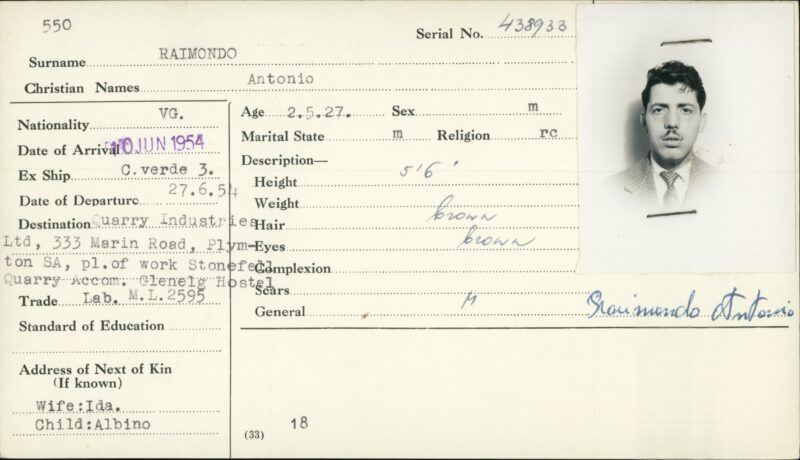 550
Serial No. 438933
Surname RAIMONDO
Christian Names Antonio
Nationality VG.
Date of Arrival 10 JUN 1954
Ex Ship C.verde 3.
Date of Departure 27.6.54
Destination Quarry Industries
Ltd, 333 Marin Road, Plym-
ton SA, pl.of work Stonefell
Quarry Accom. Glenelg Hostel
Trade Lab. M.L.2595
Standard of Education
Address of Next of Kin
(If known)
Wife:Ida.
Child:Albino
Age 2.5.27. Sex m
Marital State m Religion rc
Description—
Height 5'6"
Weight
Hair brown
Eyes brown
Complexion
Scars
General
Raimondo Antonio
(33) 18